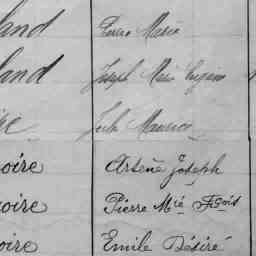 land Pierre Marie
land Joseph Marie
Maurice
oire Arsène Joseph
oire Pierre Mie Fçois
oire Emile Désiré